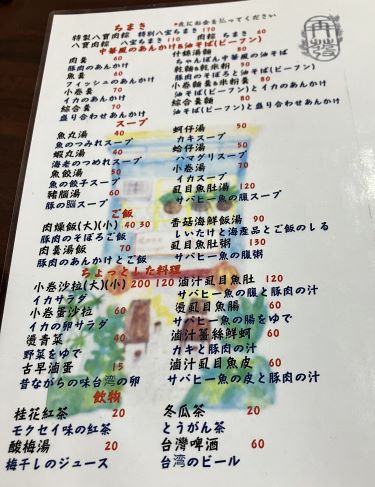 ちまき *先にお金を払ってください
特製八寶肉粽 特別八宝ちまき 170 肉粽 ちまき
八寶肉粽 八宝ちまき 110
中華風のあんかけ&油そば(ビーフン)
肉羹 60 什錦滷麵
豚肉のあんかけ ちゃんぽん中華風の油そば
魚羹 60 乾麵&乾米粉
フィッシュのあんかけ 豚肉のそぼろと油そば(ビーフン)
小卷羹 70 小卷麵&米粉羹
イカのあんかけ 油そば(ビーフン)とイカのあんかけ
綜合羹 70 綜合羹麵
盛り合わせあんかけ 油そば(ビーフン)と盛り合わせあんかけ
スープ
魚丸湯 40 蚵仔湯 50
魚のつみれスープ カキスープ
蝦丸湯 40 蛤仔湯 50
海老のつめれスープ ハマグリスープ
魚餃湯 50 小卷湯 70
魚の餃子スープ イカスープ
豬腦湯 60 虱目魚肚湯 120
豚の脳スープ サバヒー魚の腹スープ
ご飯
肉燥飯(大)(小) 40 30 香菇海鮮飯湯 90
豚肉のそぼろご飯 しいたけと海産品とご飯のしる
肉羹湯飯 70 虱目魚肚粥 130
豚肉のあんかけとご飯 サバヒー魚の腹粥
ちょっとした料理
小卷沙拉(大)(小) 200 120 滷汁虱目魚肚 120
イカサラダ サバヒー魚の腹と豚肉の汁
小卷蛋沙拉 60 燙虱目魚腸 60
イカの卵サラダ サバヒー魚の腸をゆで
燙青菜 40 滷汁薑絲鮮蚵 60
野菜をゆで カキと豚肉の汁
古早滷蛋 15 滷汁虱目魚皮 60
昔ながらの味台湾の卵 サバヒー魚の皮と豚肉の汁
飲物
桂花紅茶 20 冬瓜茶 20
モクセイ味の紅茶 とうがん茶
酸梅湯 20 台灣啤酒 60
梅干しのジュース 台湾のビール